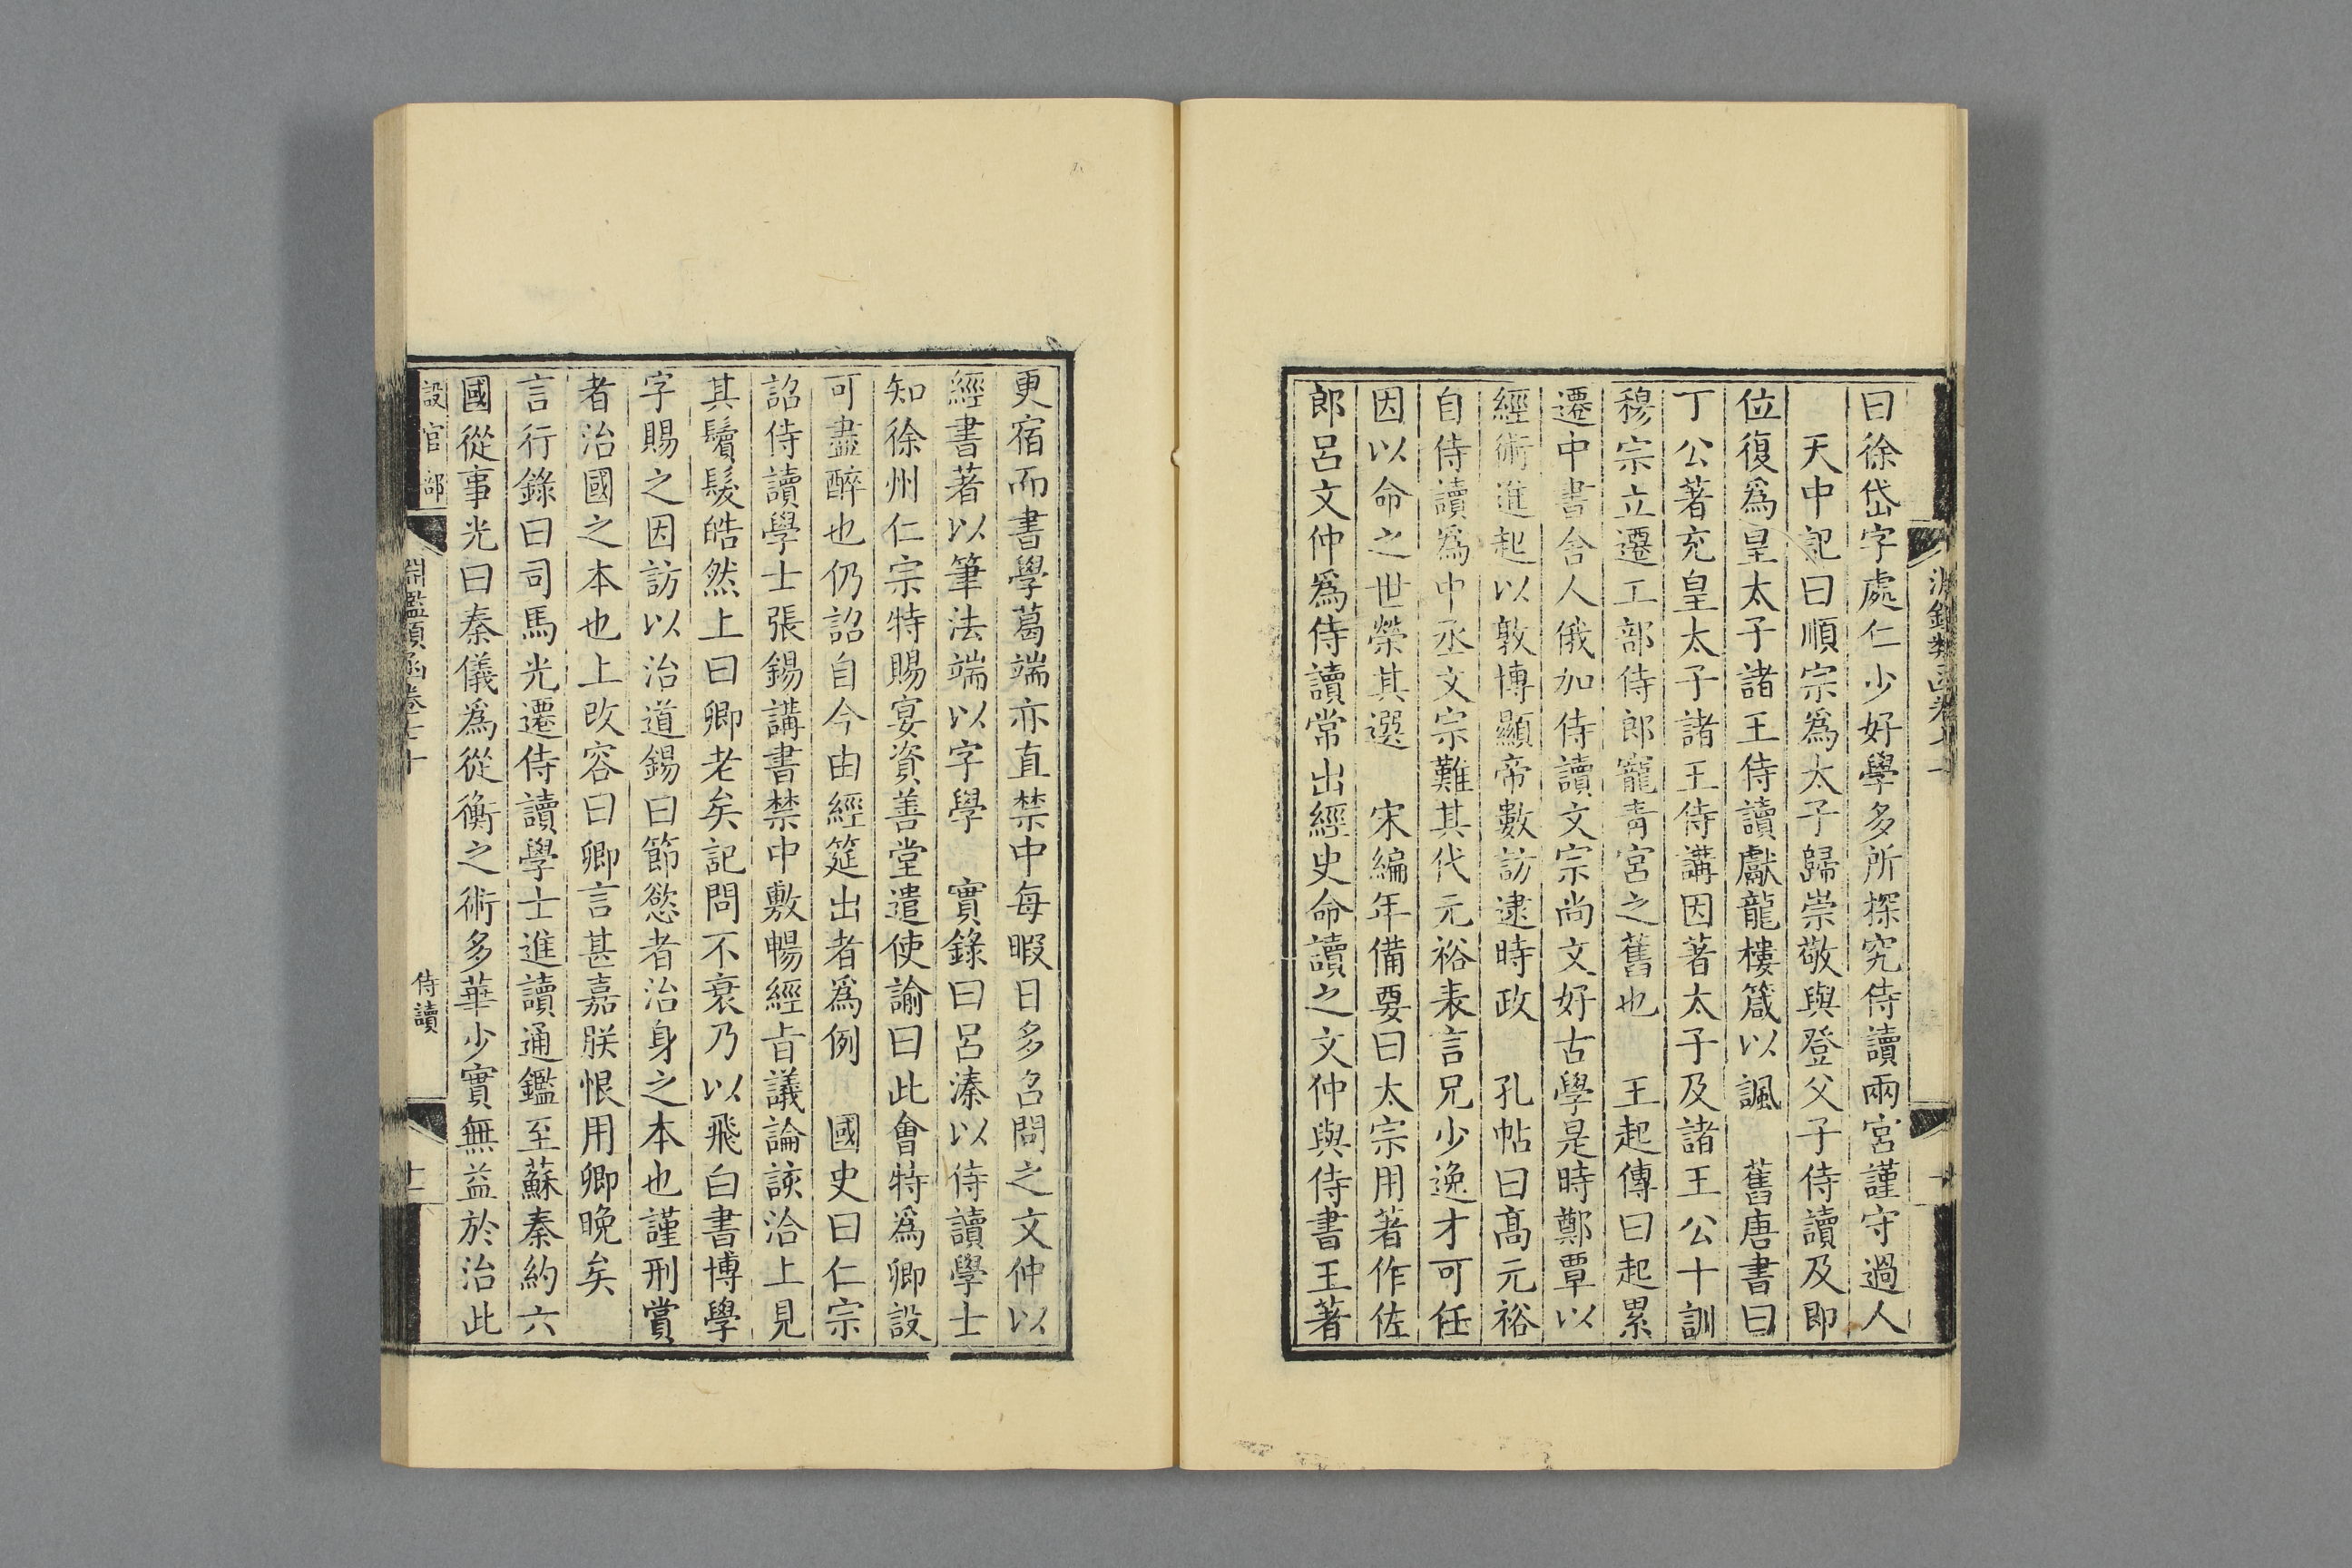 曰徐岱字處仁少好學多所探究侍讀兩宮謹守過人
天中記曰順宗爲太子歸崇敬與登父子侍讀及即
位復爲皇太子諸王侍讀獻龍樓箴以諷　舊唐書曰
丁公著充皇太子諸王侍講因著太子及諸王公十訓
穆宗立遷工部侍郎寵青宮之舊也　王起傳曰起累
遷中書舍人俄加侍讀文宗尚文好古學是時鄭覃以
經術進起以敦博顯帝數訪逮時政　孔帖曰高元裕
自侍讀爲中丞文宗難其代元裕表言兄少逸才可任
因以命之世榮其選　宋編年備要曰太宗用著作佐
郎呂文仲爲侍讀常出經史命讀之文仲與侍書王著
更宿而書學葛端亦直禁中每暇日多召問之文仲以
經書著以筆法端以字學　實錄曰呂溱以侍讀學士
知徐州仁宗特賜宴資善堂遣使諭曰此會特爲卿設
可盡醉也仍詔自今由經筵出者爲例　國史曰仁宗
詔侍讀學士張錫講書禁中敷暢經旨議論該洽上見
其鬚髮皓然上曰卿老矣記問不衰乃以飛白書博學
字賜之因訪以治道錫曰節慾者治身之本也謹刑賞
者治國之本也上改容曰卿言甚嘉朕恨用卿晚矣
言行錄曰司馬光遷侍讀學士進讀通鑑至蘇秦約六
國從事光曰秦儀爲從衡之術多華少實無益於治此
設官部
淵鑑類函卷七十
侍讀